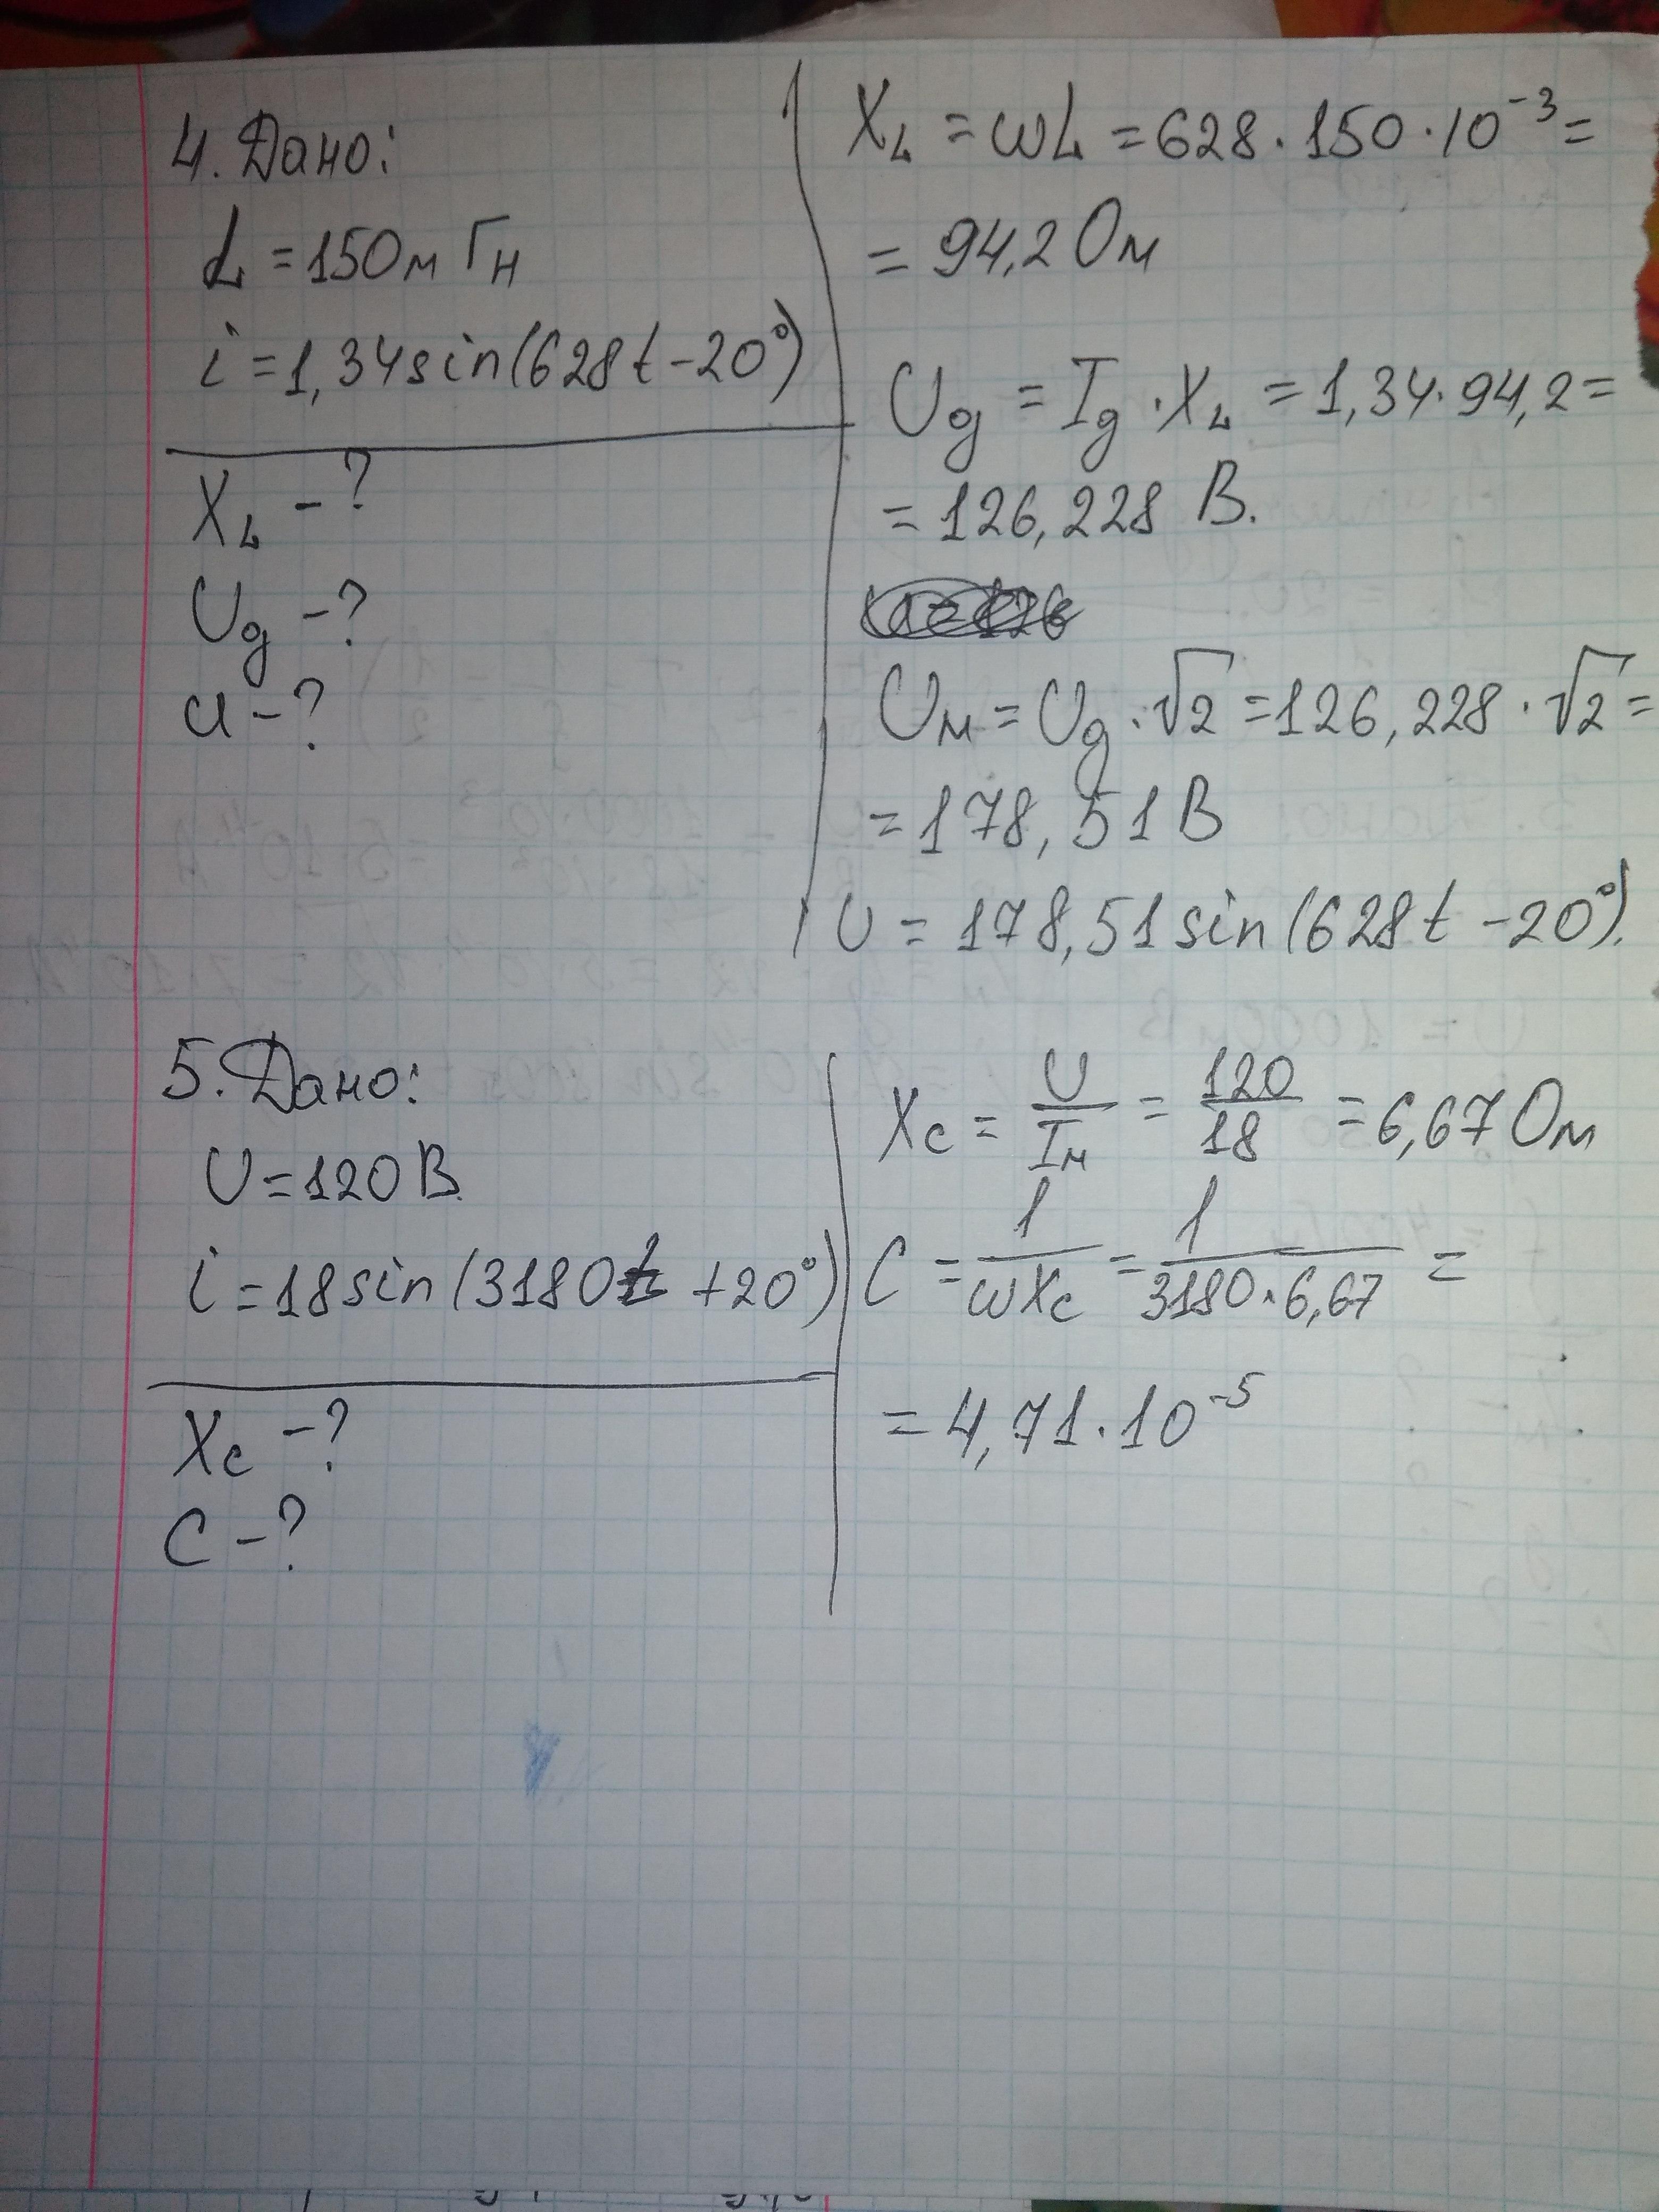 4. Дано:
L = 150мГн
i = 1,34sin(628t - 20°)
X_L - ?
U_g - ?
u - ?
X_L = ωL = 628 · 150 · 10⁻³ =
= 94,2 Ом
U_g = I_g · X_L = 1,34 · 94,2 =
= 126,228 В.
U_м = U_g · √2 = 126,228 · √2 =
= 178,51 В
U = 178,51 sin(628t - 20°).
5. Дано:
U = 120 В
i = 18sin(3180t + 20°)
X_c - ?
C - ?
X_c = U/I_м = 120/18 = 6,67 Ом
C = 1/ωX_c = 1/3180·6,67 =
= 4,71 · 10⁻⁵